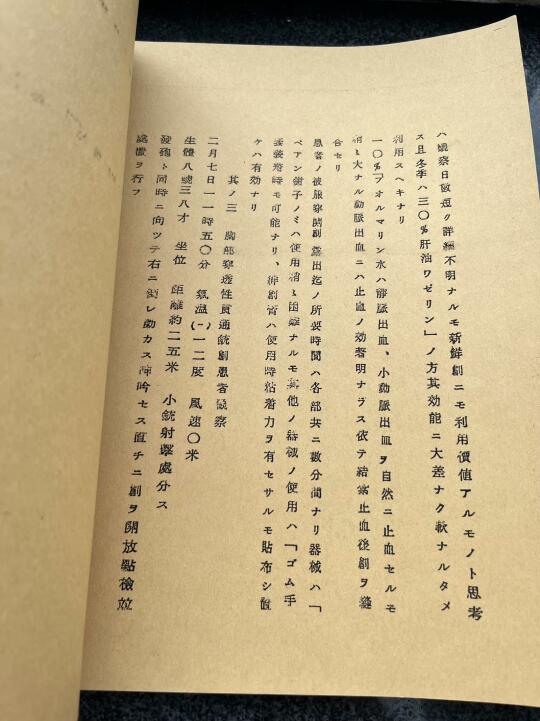 ハ観察日数短ク詳細不明ナルモ新鮮創ニモ利用價値アルモノト思考
ス且冬季ハ三〇%肝油ワゼリン」ノ方其効能ニ大差ナク軟ナルタメ
利用スヘキナリ
一〇%「フオルマリン水ハ靜脈出血、小動脈出血ヲ自然ニ止血セルモ
稍々大ナル動脈出血ニハ止血ノ効著明ナラス依テ結紮止血後創ヲ縫
合セリ
患者ノ被服 開 露出迄ノ所要時間ハ各部共ニ數分間ナリ器械ハ「
ペアン鉗子ノミハ使用稍々困難ナルモ其他ノ器械ノ使用ハ「ゴム手
套装着時モ可能ナリ、絆創膏ハ使用時粘着力ヲ有セサルモ貼布シ置
ケハ有効ナリ
其ノ三 胸部穿透性貫通銃創患者觀察
二月七日一一時五〇分 氣温(-)一二度 風速〇米
生體八號三八才 坐位 距離約二五米 小銃射撃處分ス
發砲ト同時ニ向ツテ右ニ倒レ動カス呻吟セス直チニ創ヲ開放點檢竝
處置ヲ行フ